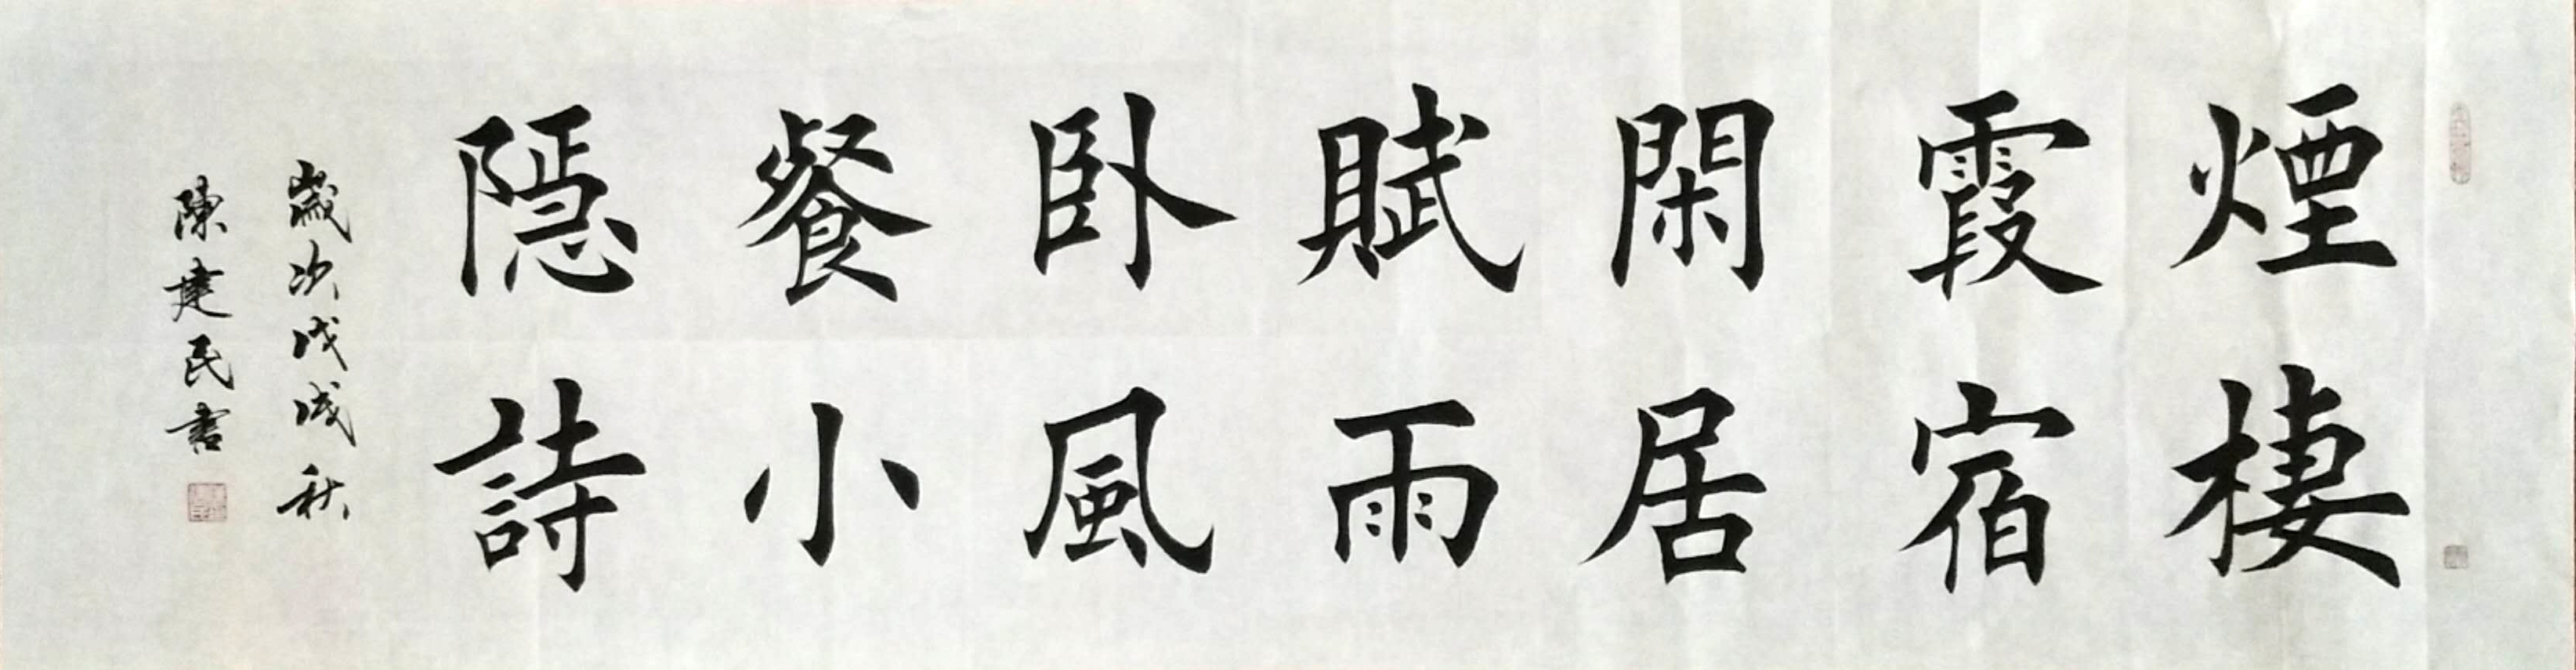 煙棲
霞宿
閑居
賦雨
卧風
餐小
隱詩
歲次戊戌秋
陳建民書